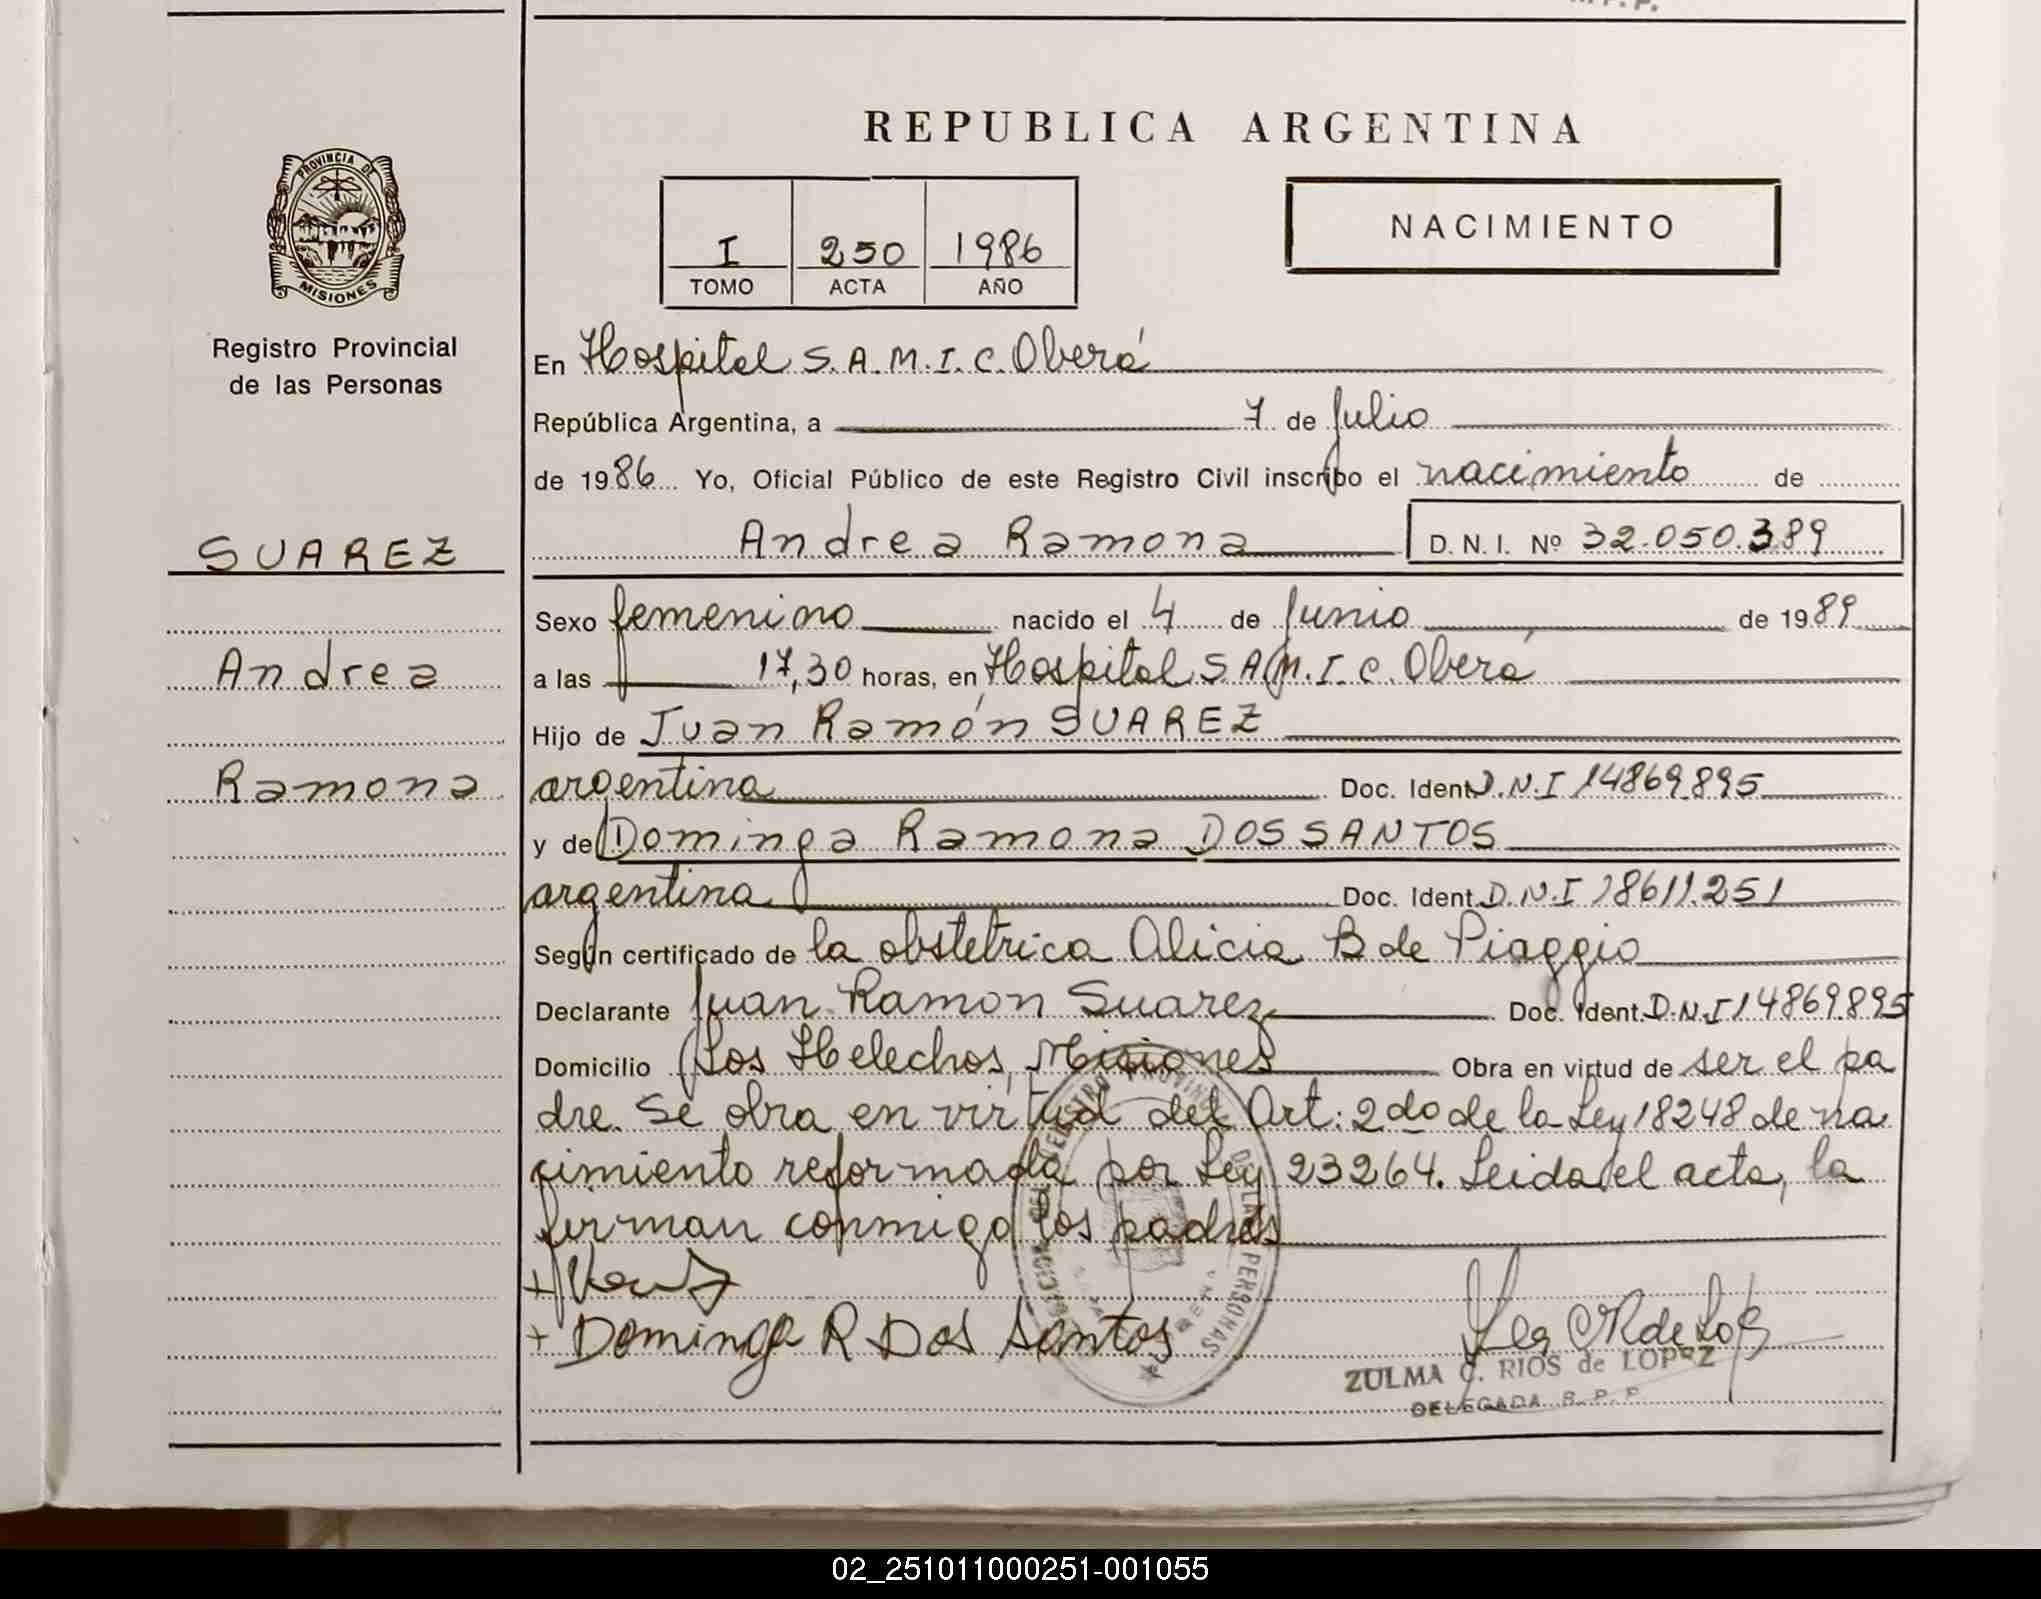 REPUBLICA ARGENTINA
PROVINCIA DE
MISIONES
Registro Provincial
de las Personas
I 250 1986
TOMO ACTA AÑO
NACIMIENTO
En Hospital S.A.M.I.C. Oberá
República Argentina, a 7 de Julio
de 1986 Yo, Oficial Público de este Registro Civil inscribo el nacimiento de
SUAREZ
Andrea Ramona D.N.I. Nº 32.050.389
Sexo femenino nacido el 4 de Junio de 1989
Andrea
a las 17,30 horas, en Hospital S.A.M.I.C. Oberá
Hijo de Juan Ramón SUAREZ
Ramona
argentina Doc. Ident. D.N.I 14869.895
y de Dominga Ramona DOS SANTOS
argentina Doc. Ident. D.N.I 18611.251
Según certificado de la obstetrica Alicia B de Piaggio
Declarante Juan Ramon Suarez Doc. Ident. D.N.I 14869.895
Domicilio Los Helechos, Misiones Obra en virtud de ser el pa
dre. Se obra en virtud del Art: 2do de la Ley 18248 de na
cimiento reformada por Ley 23264. Leida el acta, la
firman conmigo los padres
+ Dominga R Dos Santos
REGISTRO PROVINCIAL DE LAS PERSONAS
ZULMA C. RIOS de LOPEZ
DELEGADA R.P.P.
02_251011000251-001055